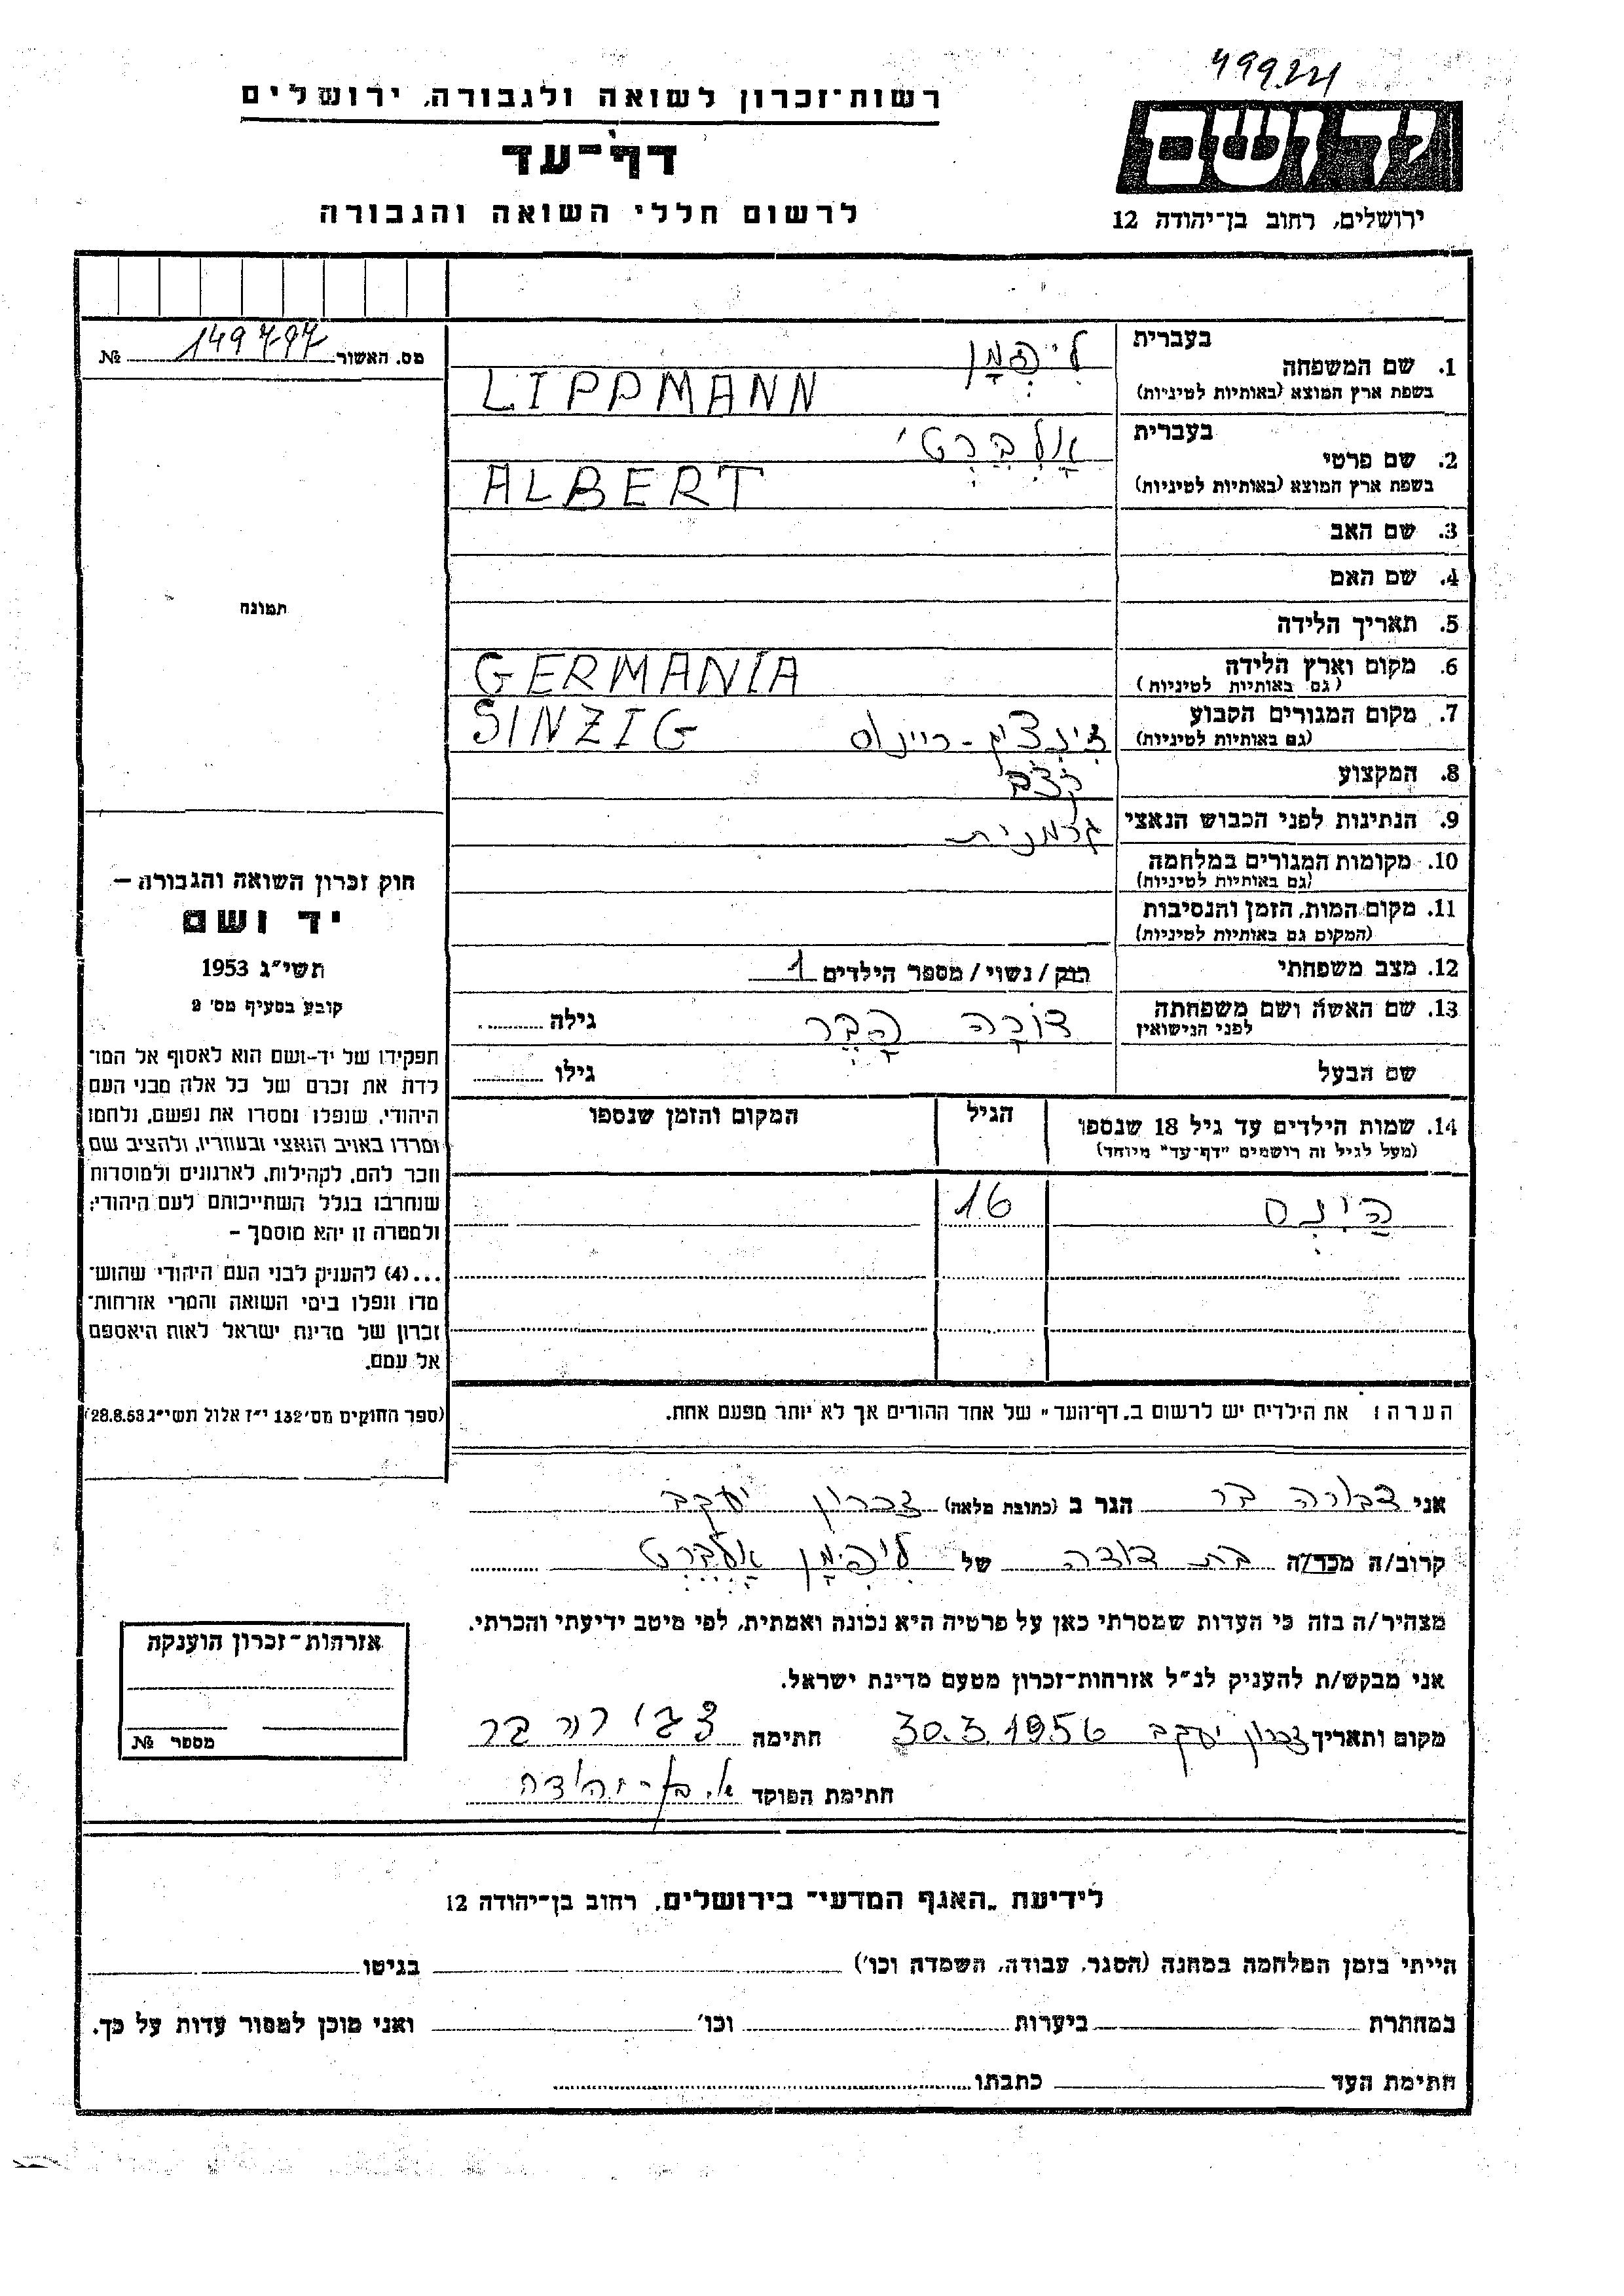 499.221
רשות־זכרון לשואה ולגבורה, ירושלים
יד ושם
דף־עד
לרשום חללי השואה והגבורה
ירושלים, רחוב בן־יהודה 12
מס. האשור 149797 №
1. שם המשפחה
בעברית לִיפְּמָן
בשפת ארץ המוצא (באותיות לטיניות) LIPPMANN
2. שם פרטי
בעברית אָלְבֶּרְט
בשפת ארץ המוצא (באותיות לטיניות) ALBERT
3. שם האב
4. שם האם
תמונה
5. תאריך הלידה
6. מקום וארץ הלידה GERMANIA
(גם באותיות לטיניות)
7. מקום המגורים הקבוע SINZIG
(גם באותיות לטיניות)
8. המקצוע קצב
9. הנתינות לפני הכבוש הנאצי גרמנית
10. מקומות המגורים במלחמה
(גם באותיות לטיניות)
11. מקום המות, הזמן והנסיבות
(המקום גם באותיות לטיניות)
12. מצב משפחתי רוק/נשוי/מספר הילדים 1
13. שם האשה ושם משפחתה
לפני הנישואין דורה גילה
שם הבעל גילו
14. שמות הילדים עד גיל 18 שנספו הגיל המקום והזמן שנספו
(מעל לגיל זה רושמים "דף־עד" מיוחד)
הַיְנְס 16
הערה: את הילדים יש לרשום ב„דף־העד" של אחד ההורים אך לא יותר מפעם אחת.
חוק זכרון השואה והגבורה –
יד ושם
תשי"ג 1953
קובע בסעיף מס' 2
תפקידו של יד־ושם הוא לאסוף אל המו־
לדת את זכרם של כל אלה מבני העם
היהודי, שנפלו ומסרו את נפשם, נלחמו
ומרדו באויב הנאצי ובעוזריו, ולהציב שם
וזכר להם, לקהילות, לארגונים ולמוסדות
שנחרבו בגלל השתייכותם לעם היהודי;
ולמטרה זו יהא מוסמך –
...(4) להעניק לבני העם היהודי שהוש־
מדו ונפלו בימי השואה והמרי אזרחות־
זכרון של מדינת ישראל לאות היאספם
אל עמם.
(ספר החוקים מס' 132 י"ז אלול תשי"ג 28.8.53)
אני דבורה בר הגר ב (כתובת מלאה) זכרון יעקב
קרוב/ה מכר/ה בת דודה של לִיפְּמָן אָלְבֶּרְט
מצהיר/ה בזה כי העדות שמסרתי כאן על פרטיה היא נכונה ואמתית, לפי מיטב ידיעתי והכרתי.
אני מבקש/ת להעניק לנ"ל אזרחות־זכרון מטעם מדינת ישראל.
מקום ותאריך זכרון יעקב 30.3.1956 חתימה דבורה בר
חתימת הפוקד
אזרחות־זכרון הוענקה
מספר №
לידיעת „האגף המדעי" בירושלים, רחוב בן־יהודה 12
הייתי בזמן המלחמה במחנה (הסגר, עבודה, השמדה וכו') בגיטו
במחתרת ביערות וכו' ואני מוכן למסור עדות על כך.
חתימת העד כתבתו